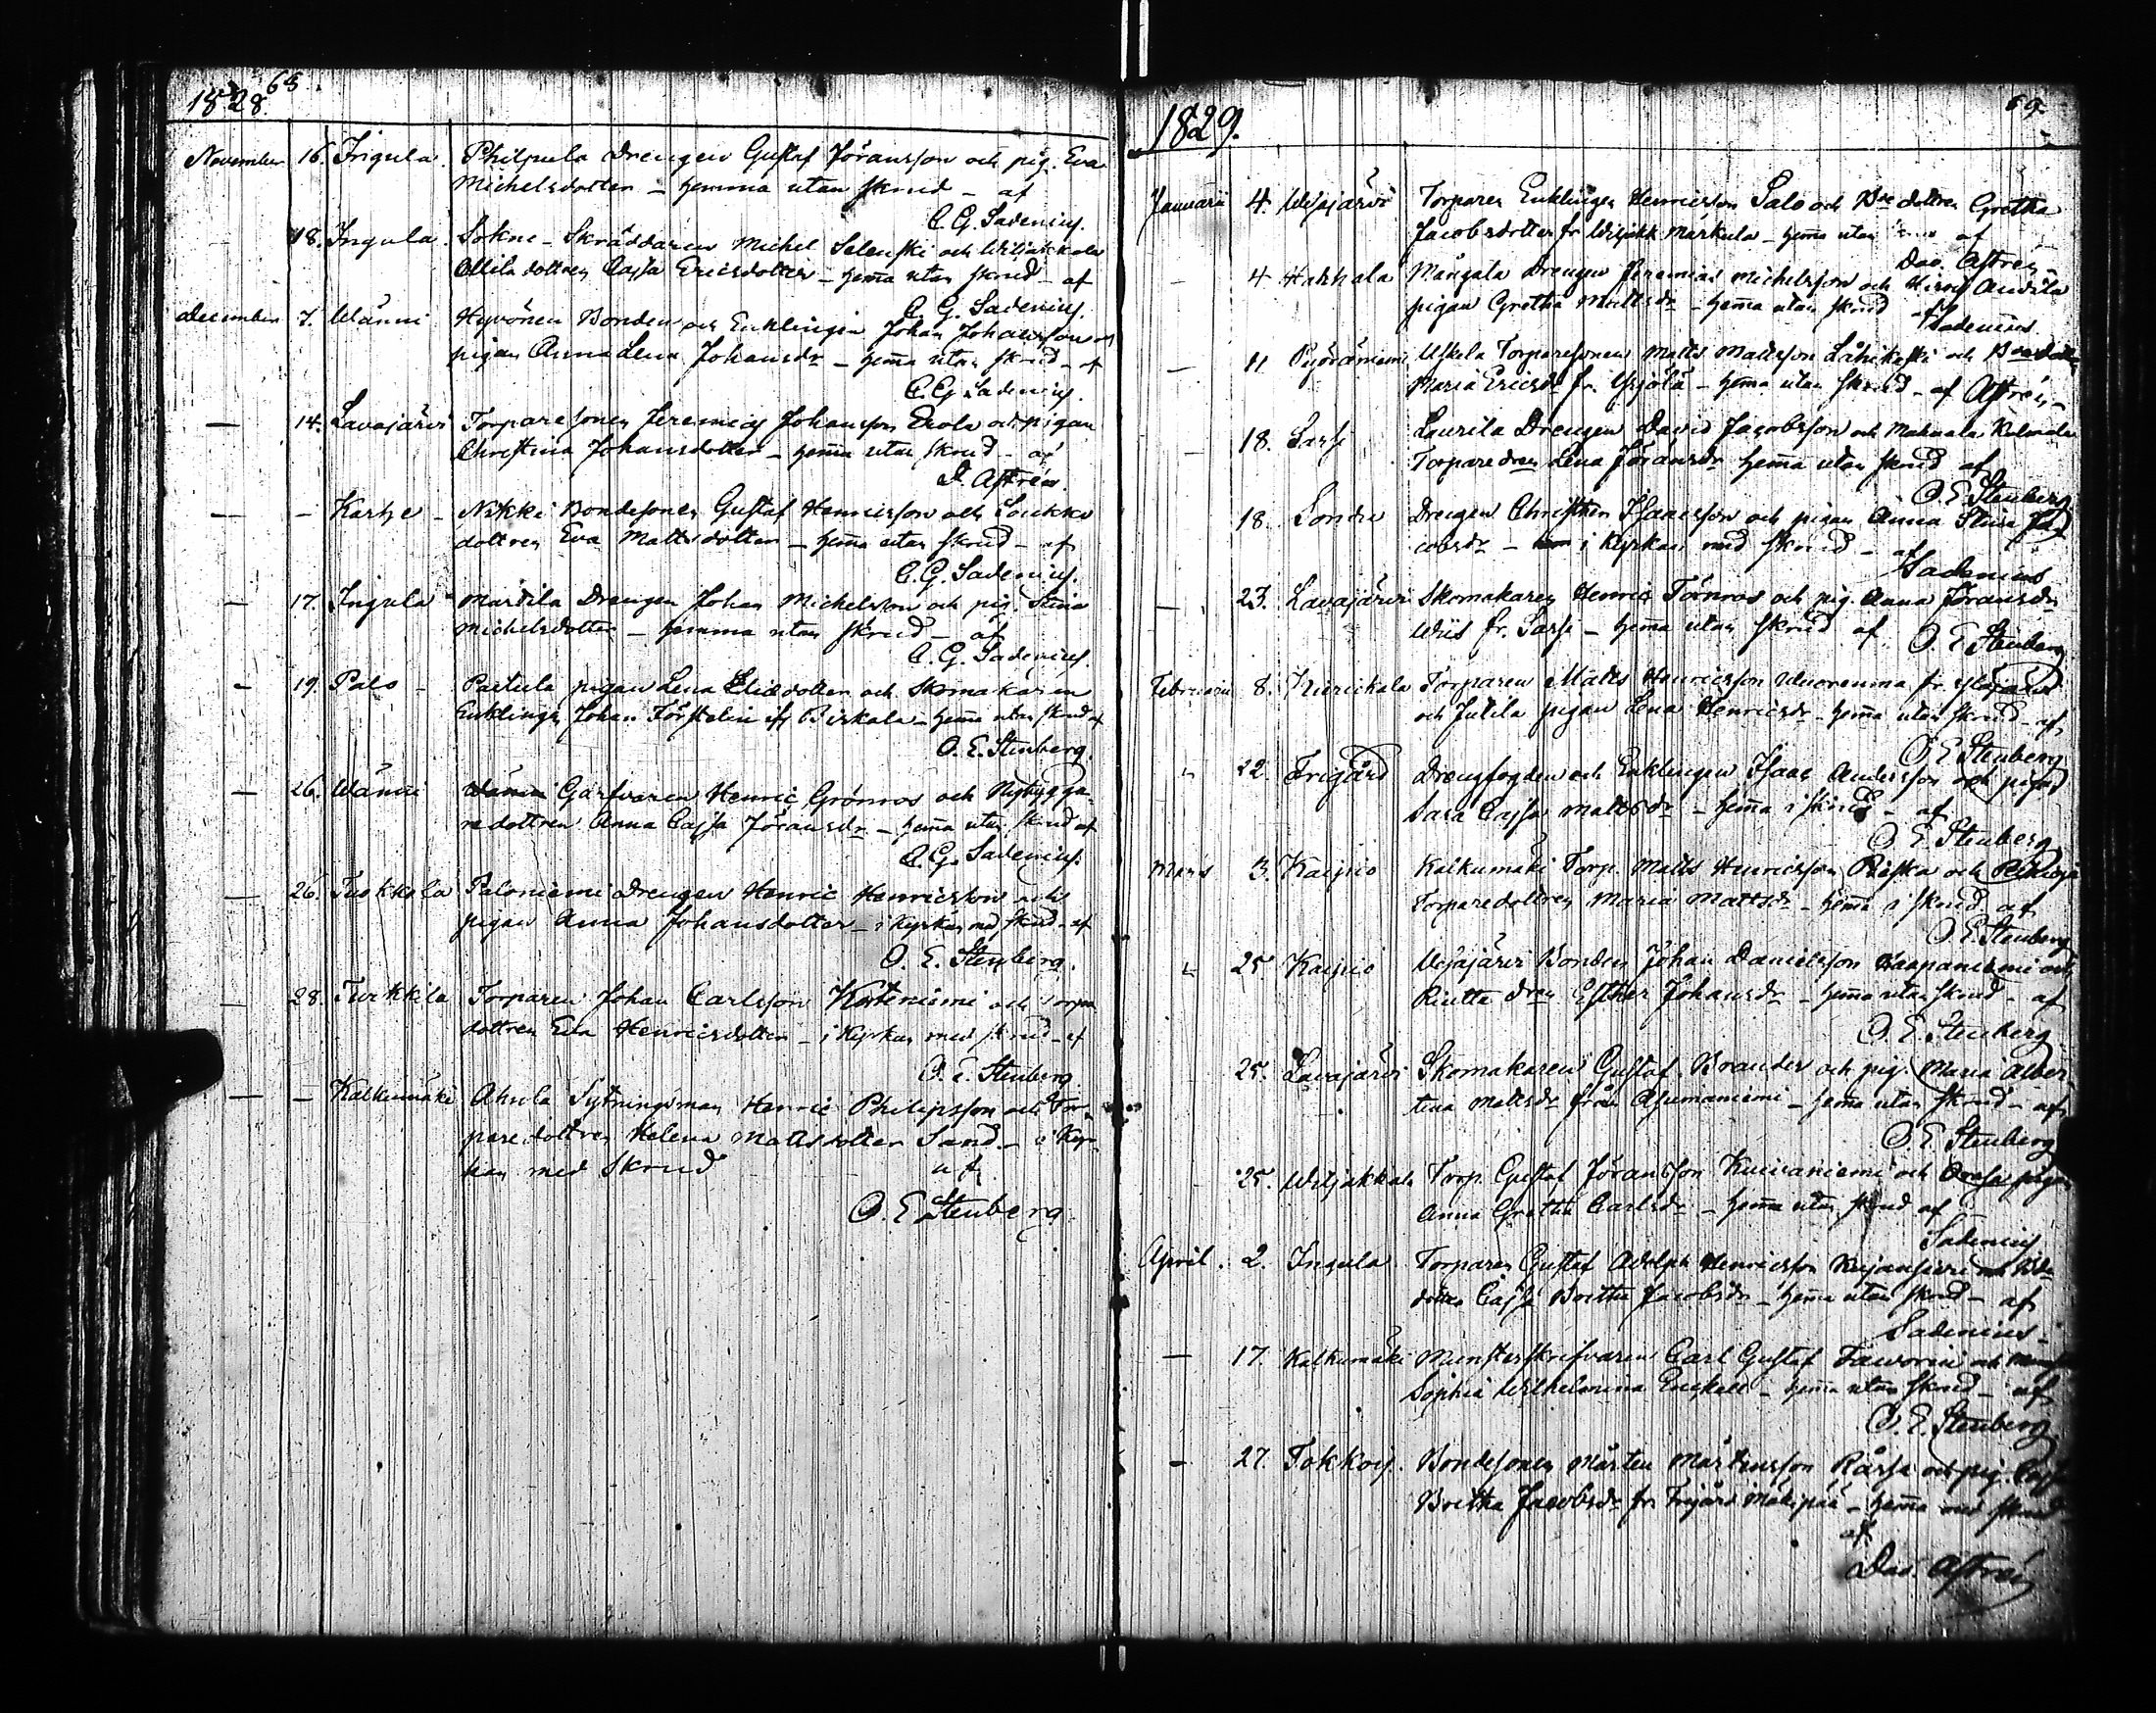 68.
1828.
November 16. Ingula. Philpula Drengen Gustaf Jöransson och pig. Eva
Michelsdotter - hemma utan skrud - af
C. G. Sadenius.
— 18. Ingula. Sokne-Skräddaren Michel Selenski och Wiljakkala
Ollila dottren Cajsa Ericsdotter - hema utan skrud - af
C. G. Sadenius.
December 7. Wänni Hyvönen Bonden och Enklingen Johan Johansson och
pigan Anna Lena Johansdr - hema utan skrud - af
C. G. Sadenius.
— 14. Lavajärvi Torparesonen Jeremias Johansson Erola och pigan
Christina Johansdotter - hema utan skrud - af
D. Astrén.
— - Kartze - Nikki Bondesonen Gustaf Henricsson och Loukko
dottren Eva Mattsdotter - hema utan skrud - af
C. G. Sadenius.
— 17. Ingula Mardila Drengen Johan Michelsson och pig. Stina
Michelsdotter - hemma utan skrud - af
C. G. Sadenius.
— 19. Palo - Partula pigan Lena Eliædotter och Skomakaren
Enklingen Johan Förstelin ifr Birkala - hema utan skrud af
O. E. Stenberg.
— 26. Wänni Garfvaren Henric Grönros och Nybygga-
redottren Anna Cajsa Jöransdr - hema utan skrud af
C. G. Sadenius.
— 26. Tuokkola Paloniemi Drengen Henric Henricsson och
pigan Anna Johansdotter - i Kyrkan med skrud - af
O. E. Stenberg.
— 28. Turkkila Torparen Johan Carlsson Korteniemi och Torpa
dottren Eva Henricsdotter - i Kyrkan med skrud - af
O. E. Stenberg
— - Kalkumäki Ahola Sytningsman Henric Philipsson och Tor-
paredottren Helena Mattsdotter Sand - i Kyr-
kan med Skrud af
O. E. Stenberg
69.
1829.
Januarii 4. Wejajärvi Torparen Enklingen Henricsson Salo och dottren Gretha
Jacobsdotter fr Wiljakk Markula - hema utan af
Dav. Astren
— 4 Hakkala Mångala Drengen Jeremias Michelsson och Andila
pigan Gretha Mattsdr - hema utan skrud af
Sadenius
— 11 Pyöräniemi Uskela Torparesonen Matts Mattsson Låhikoski och
Maria Ericsdr fr. Yrjölä - hema utan skrud - af Astrén -
— 18. Sarse Laurila Drengen David Jacobsson och
Torparedren Lena Jöransdr hema utan skrud af
O E Stenberg
18. Drengen Christer Isacsson och pigan Anna Stina Ja-
cobsdr - i Kyrkan med skrud - af
Sadenius
— 23. Lavajärvi Skomakaren Henric Törnros och pig. Anna Jöransdr
Wiis fr. Sarse - hema utan skrud af O. E Stenberg
Februarii 8. Kierickala Torparen Matts Henricsson Wuorenma fr
och Jutila pigan Lena Henricsdr - hema utan skrud - af
O E Stenberg
" 22. Frigård Drengfogden och Enklingen Isaac Andersson och pigan
Sara Cajsa Mattsdr - hema i skrud - af
O E Stenberg
Mars 3. Kaipio Kalkumäki Torp. Matts Henricsson Räska och
Torparedottren Maria Mattsdr - hema i skrud af
O E. Stenberg
" 25 Kaipio Wejajärvi Bonden Johan Danielsson Haapaniemi och
Riutta dren Esther Johansdr - hema utan skrud - af
O. E. Stenberg
25. Lavajärvi Skomakaren Gustaf Brander och pig. Maria Alber-
tina Mattsdr från Asumaniemi - hema utan skrud - af
O E Stenberg
25. Wiljakkala Torp. Gustaf Jöransson Kuivaniemi och pigan
Anna Gretha Carlsdr - hema utan skrud af
Sadenius
April. 2. Ingula Torparen Gustaf Adolph Henricsson Kujansivu och
dotter Cajsa Britha Jacobsdr - hema utan skrud - af
Sadenius -
— 17. Kalkumäki Munsterskrifvaren Carl Gustaf Faworin och
Sophia Wilhelmina Enckell - hema utan skrud - af
O. E. Stenberg
— 27. Tokkois. Bondesonen Mårten Mårtensson Råsse och pig. Cajsa
Britha Jacobsdr fr Frigård Mäkipää - hema med skrud
af
Dav. Astrén